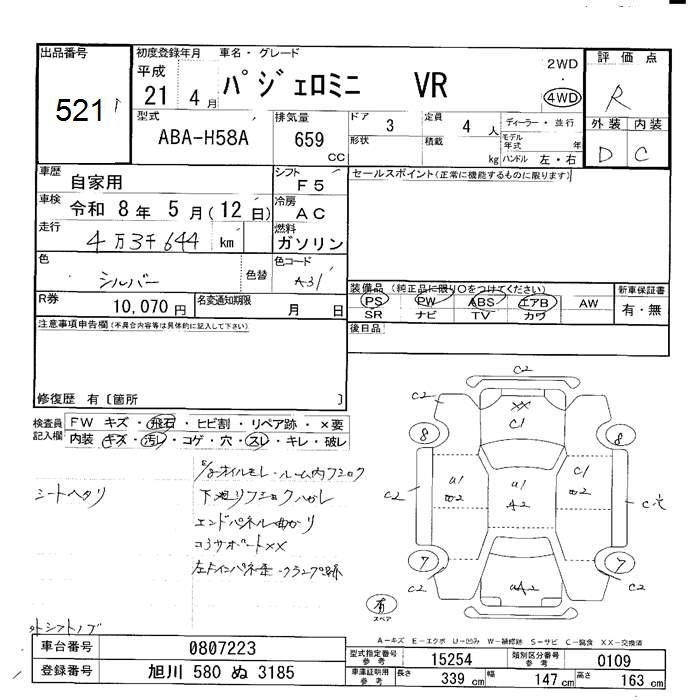 出品番号
521
初度登録年月
車名・グレード
平成
21 4月
パジェロミニ VR
2WD
4WD
評価点
R
外装 内装
D C
型式
ABA-H58A
排気量
659
CC
ドア 3
定員 4 人
形状
積載 kg
ディーラー・並行
モデル年式 年
ハンドル 左・右
車歴
自家用
シフト
F5
セールスポイント(正常に機能するものに限ります)
車検
令和 8年 5月(12日)
冷房
AC
走行
4万3千644 km
燃料
ガソリン
色
シルバー
色替
色コード
A31
装備品(純正品に限り○をつけてください)
新車保証書
PS PW ABS エアB AW
SR ナビ TV カワ
有・無
R券
10,070円
名変通知期限
月 日
後日品
注意事項申告欄(不具合内容等は具体的に記入して下さい)
修復歴 有〔箇所 〕
検査員記入欄
FW キズ・飛石・ヒビ割・リペア跡・×要
内装 キズ・汚レ・コゲ・穴・スレ・キレ・破レ
シートヘタリ
エンドパネル曲がり
コアサポートXX
外シフトノブ
C2
C2
C2
XX
C1
8
8
C2
A1
A2
C1
C2
7
7
C2
C2
有
スペア
A-キズ E-エクボ U-凹み W-補修跡 S-サビ C-腐食 XX-交換済
車台番号
0807223
登録番号
旭川 580 ぬ 3185
型式指定番号
参考
15254
類別区分番号
参考
0109
車庫証明用
参考
長さ 339 cm
幅 147 cm
高さ 163 cm